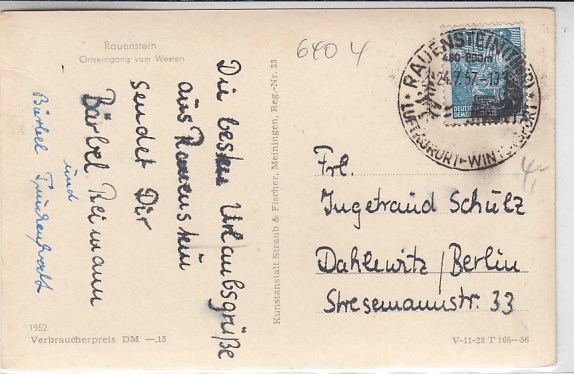 Rauenstein
Ortseingang vom Westen
6404
Die besten Urlaubsgrüße
aus Rauenstein
sendet Dir
Bärbel Reimann
und
Bärbel
Kunstanstalt Straub & Fischer, Meiningen, Reg.-Nr. 23
RAUENSTEIN (THÜR)
480-800m
24.7.57-13
LUFTKURORT-WINTERSPORT
DEUTSCHE
4,-
Frl.
Ingetraud Schulz
Dahlewitz/Berlin
Stresemannstr. 33
1952
Verbraucherpreis DM —,15
V-11-28 T 166—56